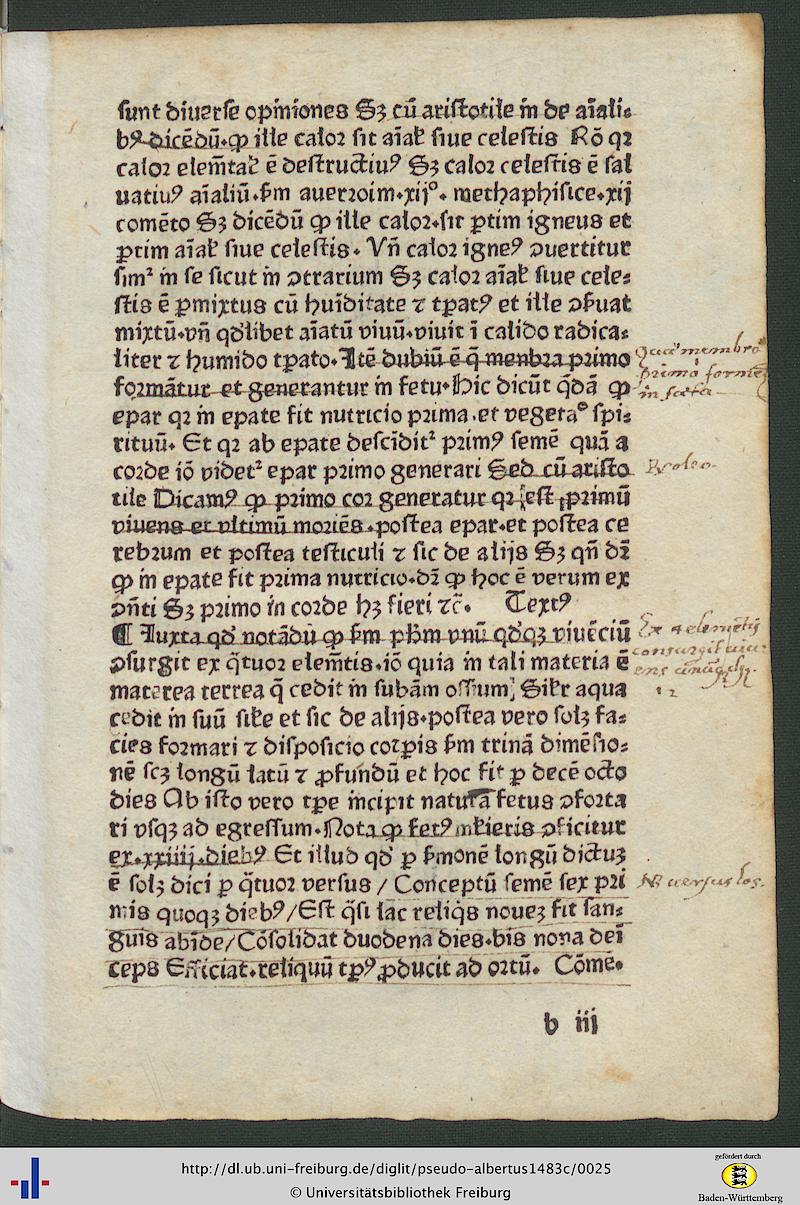 sunt diuerse opiniones Sꝫ cū aristotile in de aīali⸗
bꝰ dicēdū·ꝙ ille calor sit aīał siue celestis Rō qꝛ
calor elem̄tał ē destructiuꝰ Sꝫ calor celestis ē sal
uatiuꝰ aīaliū·ẜm auerroim·xijº· methaphisice·xij
comēto Sꝫ dicēdū ꝙ ille calor·sit ꝑtim igneus et
ꝑtim aīał siue celestis· Vn̄ calor igneꝰ ↄuertitur
sim² in se sicut in ↄtrarium Sꝫ calor aīał siue cele⸗
stis ē ꝑmixtus cū huīditate ⁊ tꝑatꝰ et ille ↄẜuat
mixtū·vn̄ qd̛libet aīatū viuū·viuit ī calido radica⸗
liter ⁊ humido tꝑato·Itē dubiū ē q̄ menbra primo
formātur et generantur in fetu·Hic dicūt qdā ꝙ
epar qꝛ in epate fit nutricio prima·et vegeta° spi⸗
rituū· Et qꝛ ab epate descīdit² primꝰ semē quā a
corde iō videt² epar primo generari Sed cū aristo
tile Dicamꝰ ꝙ primo cor generatur qꝛ est primū
viuens et vltimū moriēs·postea epar·et postea ce
rebrum et postea testiculi ⁊ sic de alijs Sꝫ qn̄ dꝛ̄
ꝙ in epate fit prima nutricio·dꝛ̄ ꝙ hoc ē verum ex
ↄn̄ti Sꝫ primo in corde hꝫ fieri ⁊c̄· Textꝰ
¶ Iuxta qd̛ notādū ꝙ ẜm pħm vnū qd̛qꝫ viuēciū
ↄsurgit ex q̄tuor elem̄tis·iō quia in tali materia ē
materea terrea q̄ cedit in subām ossium; Silr aqua
cedit in suū sile et sic de alijs·postea vero solꝫ fa⸗
cies formari ⁊ disposicio corꝑis ẜm trinā dimēsio⸗
nē scꝫ longū latū ⁊ ꝓfundū et hoc fit ꝑ decē octo
dies Ab isto vero tꝑe incipit natura fetus ↄforta
ri vsqꝫ ad egressum·Nota ꝙ fetꝰ mlieris ↄficitur
ex·xxiiij·diebꝰ Et illud qd̛ ꝑ ẜmonē longū dictuꝫ
ē solꝫ dici ꝑ q̄tuor versus / Conceptū semē sex pri
mis quoqꝫ diebꝰ/Est q̄si lac reliqis noueꝫ fit san⸗
guis abīde/Cōsolidat duodena dies·bis nona deī
ceps Efficiat·reliquū tꝑꝰ ꝓducit ad ortū· Cōmē·
b iij
membra
primo
in foetu
Ex 4 elementis
consurgit
versus
http://dl.ub.uni-freiburg.de/diglit/pseudo-albertus1483c/0025
© Universitätsbibliothek Freiburg
gefördert durch
Baden-Württemberg